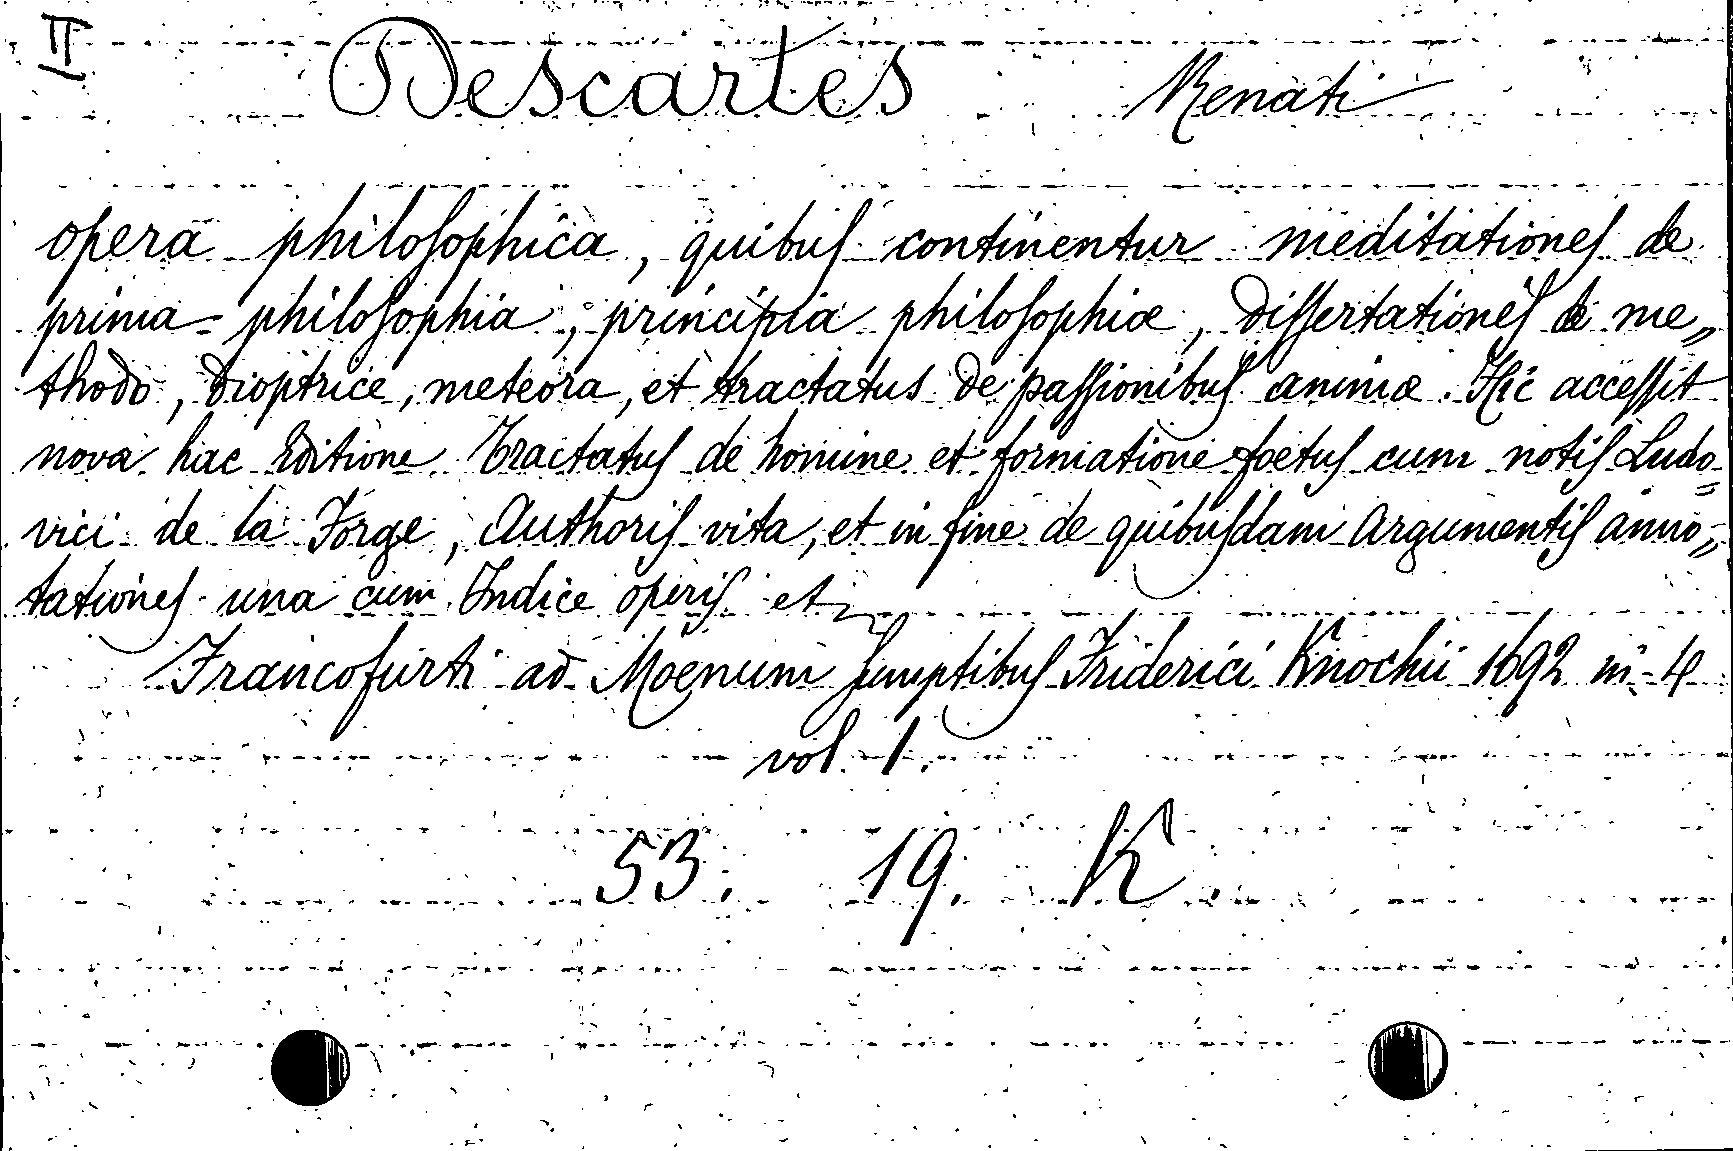 II
Descartes Renati
opera philosophica, quibus continentur meditationes de
prima philosophia, principia philosophiæ, Dissertationes de me„
thodo, Dioptrice, meteora, et tractatus de passionibus animæ. Hic accessit
nova hac Editione Tractatus de homine et formatione foetus cum notis Ludo=
vici de la Forge, Authoris vita, et in fine de quibusdam Argumentis anno„
tationes una cum Indice operis et
Francofurti ad Moenum sumptibus Friderici Knochii 1692 in 4
vol. 1.
53. 19. K.